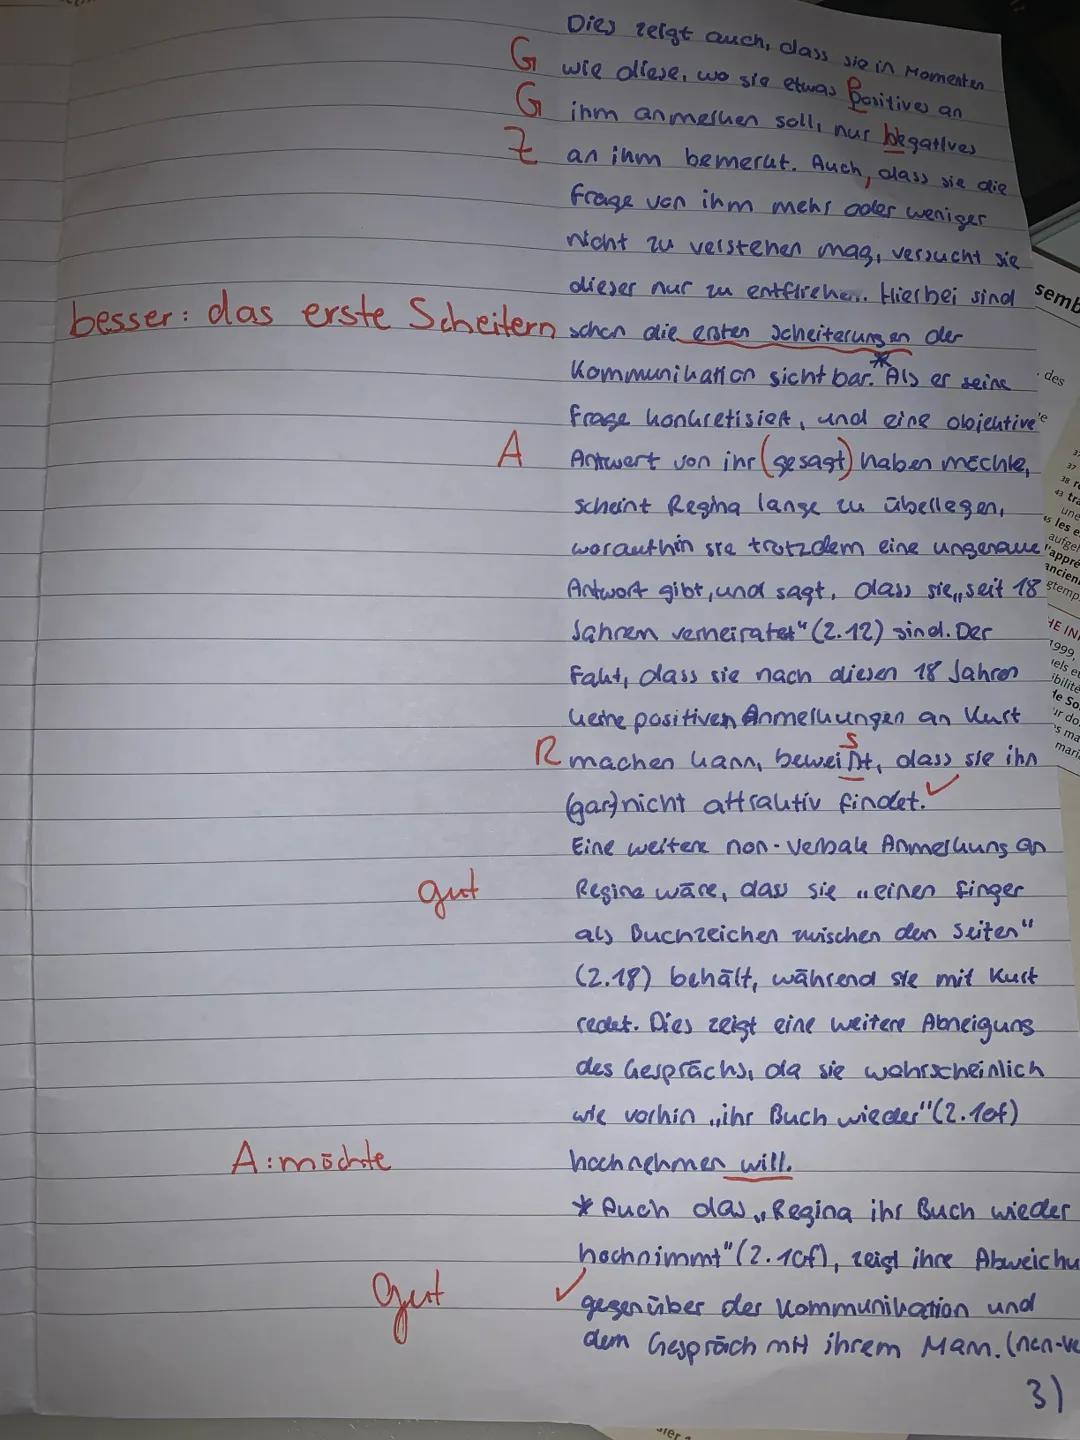 Dies zeigt auch, dass sie in Momenten
G wie diese, wo sie etwas Positives an
G ihm anmerken soll, nur Negatives
Z an ihm bemerkt. Auch, dass sie die
Frage von ihm mehr oder weniger
nicht zu verstehen mag, versucht sie
dieser nur zu entfliehen. Hierbei sind
besser: das erste Scheitern schon die ersten Scheiterungen der
Kommunikation sichtbar.* Als er seine
Frage konkretisiert, und eine objektive
A Antwort von ihr (gesagt) haben möchte,
scheint Regina lange zu überlegen,
woraufhin sie trotzdem eine ungenaue
Antwort gibt, und sagt, dass sie „seit 18
Jahren verheiratet" (Z.12) sind. Der
Fakt, dass sie nach diesen 18 Jahren
keine positiven Anmerkungen an Kurt
R machen kann, beweißt, dass sie ihn
s
(gar) nicht attraktiv findet. ✓
Eine weitere non-verbale Anmerkung an
gut Regina wäre, dass sie „einen Finger
als Buchzeichen zwischen den Seiten"
(Z.18) behält, während sie mit Kurt
redet. Dies zeigt eine weitere Abneigung
des Gesprächs, da sie wahrscheinlich
wie vorhin „ihr Buch wieder" (Z.10f)
A: möchte hochnehmen will.
* Auch das „Regina ihr Buch wieder
hochnimmt" (Z.10f), zeigt ihre Abweichu
gut ✓ gegenüber der Kommunikation und
dem Gespräch mit ihrem Mann. (non-ve
3)
semb
des
37
38
43
une
les e
aufge
appre
ancien
gtemp
HE IN
1999,
iels e
ibilité
le So
ur do
s ma
mari